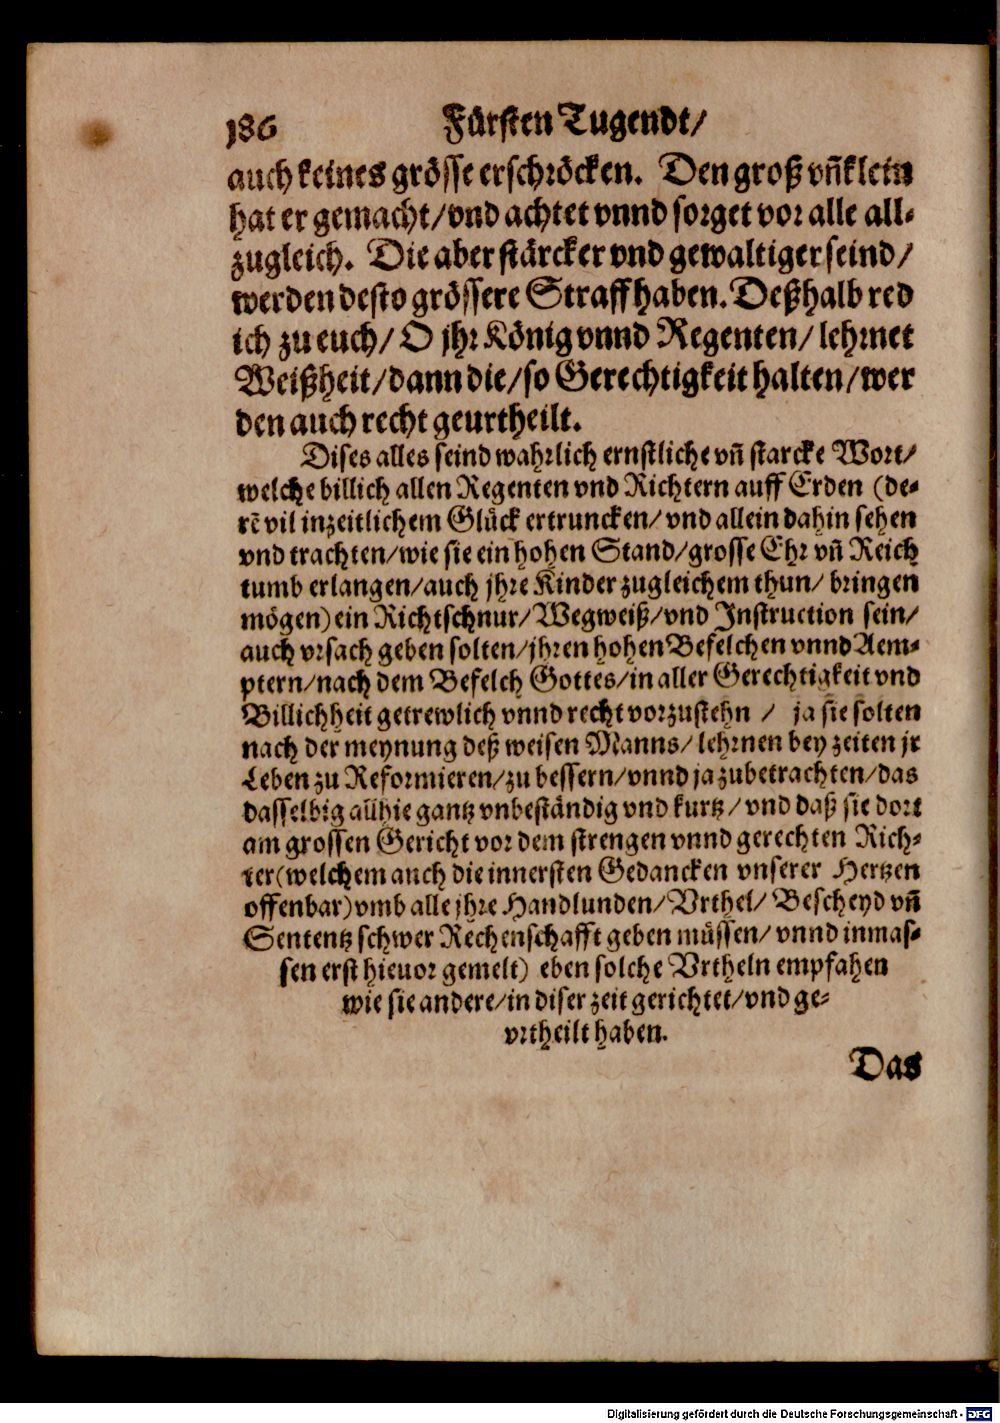 186 Fürsten Tugendt/
auch keines grösse erschröcken. Den groß vñ klein
hat er gemacht/vnd achtet vnnd sorget vor alle all-
zugleich. Die aber stärcker vnd gewaltiger seind/
werden desto grössere Straff haben. Deßhalb red
ich zu euch/ O jhr König vnnd Regenten/ lehrnet
Weißheit/dann die/so Gerechtigkeit halten/wer
den auch recht geurtheilt.
Dises alles seind wahrlich ernstliche vñ starcke Wort/
welche billich allen Regenten vnd Richtern auff Erden (de-
rẽ vil in zeitlichem Glück ertruncken/ vnd allein dahin sehen
vnd trachten/wie sie ein hohen Stand/grosse Ehr vñ Reich
tumb erlangen/auch jhre Kinder zugleichem thun/ bringen
mögen) ein Richtschnur/Wegweiß/vnd Instruction sein/
auch vrsach geben solten/jhren hohen Befelchen vnnd Aem-
ptern/nach dem Befelch Gottes/in aller Gerechtigkeit vnd
Billichheit getrewlich vnnd recht vorzustehn / ja sie solten
nach der meynung deß weisen Manns/ lehrnen bey zeiten jr
Leben zu Reformieren/zu bessern/vnnd ja zubetrachten/das
dasselbig allhie gantz vnbeständig vnd kurtz/ vnd daß sie dort
am grossen Gericht vor dem strengen vnnd gerechten Rich-
ter(welchem auch die innersten Gedancken vnserer Hertzen
offenbar) vmb alle jhre Handlunden/ Vrthel/ Bescheyd vñ
Sententz schwer Rechenschafft geben müssen/ vnnd inmas-
sen erst hieuor gemelt) eben solche Vrtheln empfahen
wie sie andere/in diser zeit gerichtet/vnd ge-
vrtheilt haben.
Das
Digitalisierung gefördert durch die Deutsche Forschungsgemeinschaft - DFG